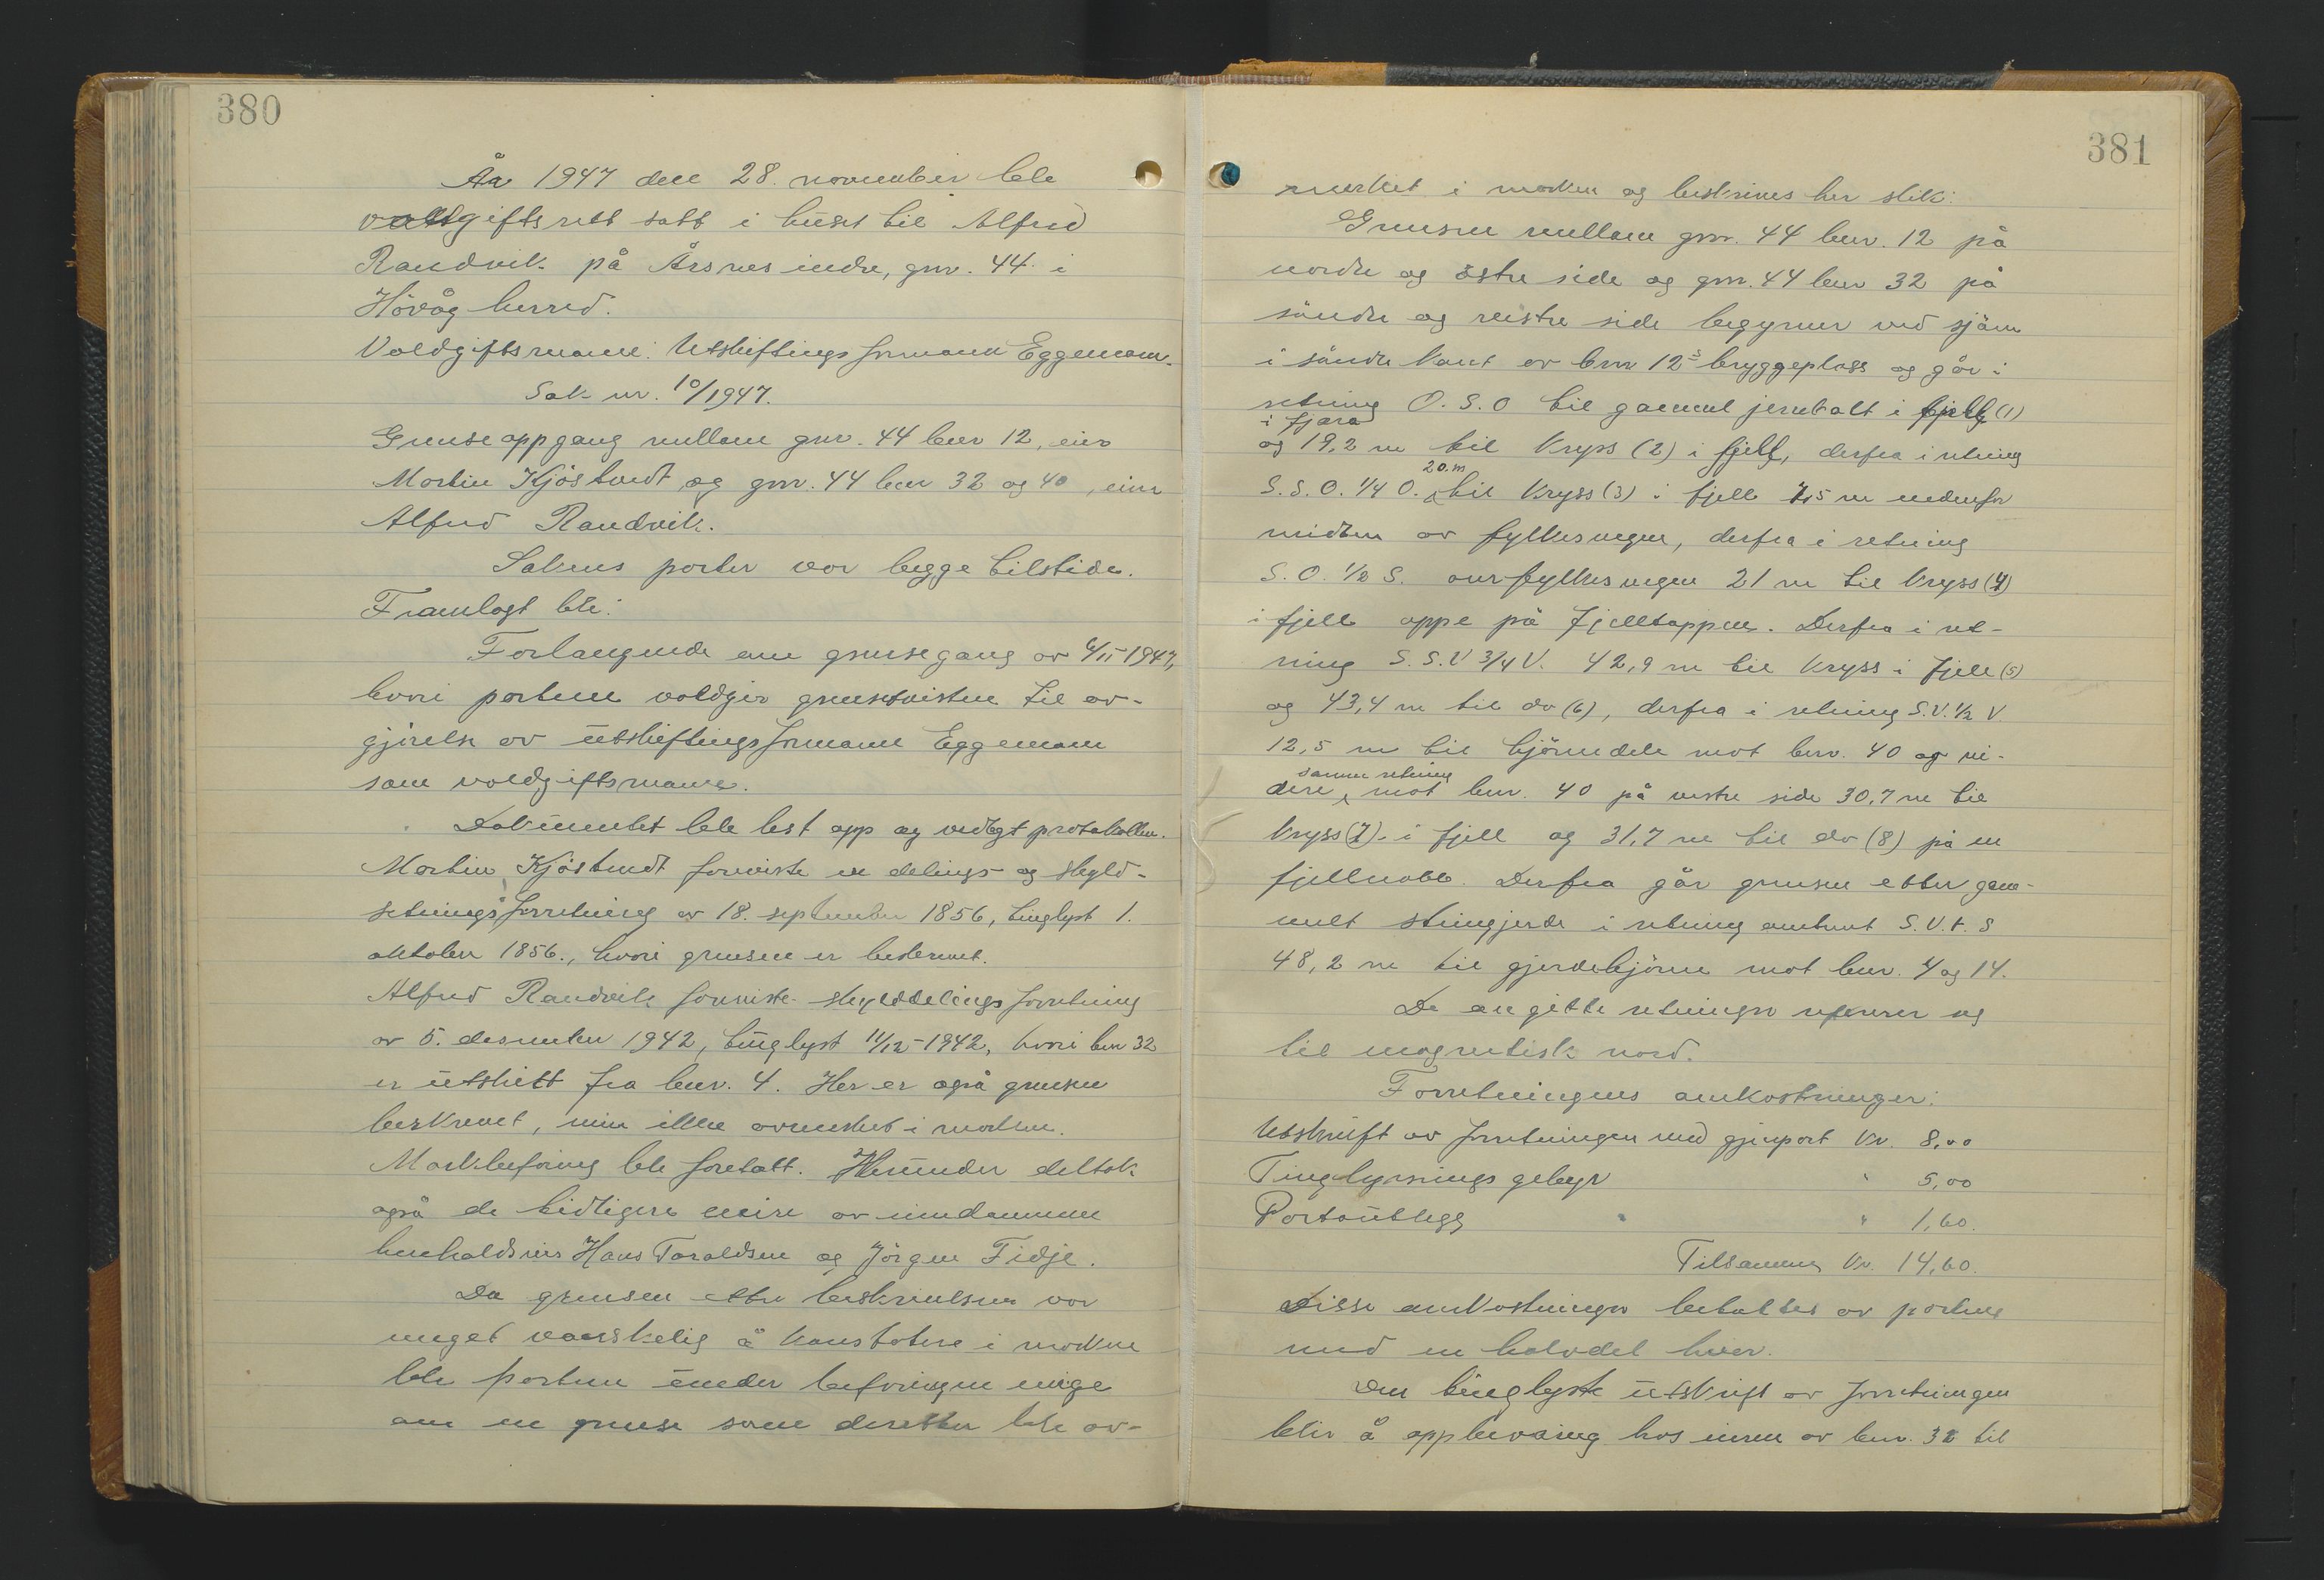 380
År 1947 den 28. november ble
voldgiftsrett satt i huset til Alfred
Randvik på Årsnes indre, gnr. 44 i
Hövåg herred.
Voldgiftsmann: Utskiftingsformann Eggemoen.
Sak nr. 10/1947.
Grenseoppgang mellom gnr. 44 bnr 12, eier
Martin Kjöstvedt og gnr. 44 bnr 32 og 40, eier
Alfred Randvik.
Sakens parter var begge tilstede.
Framlagt ble:
Forlangende om grensegang av 6/11-1947,
hvori partene voldgir grensetvisten til av-
gjörelse av utskiftingsformann Eggemoen
som voldgiftsmann.
Dokumentet ble lest opp og vedlagt protokollen.
Martin Kjöstvedt forviste en delings- og skyld-
setningsforretning av 18. september 1856, tinglyst 1.
oktober 1856., hvori grensen er bestemt.
Alfred Randvik forviste skylddelingsforretning
av 5. desember 1942, tinglyst 11/12-1942, hvori bnr 32
er utskilt fra bnr. 4. Her er også grensen
beskrevet, men ikke avmerket i marken.
Markbefaring ble foretatt. Herunder deltok
også de tidligere eiere av eiendommene
henholdsvis Hans Taraldsen og Jörgen Fidje.
Da grensen etter beskrivelsen var
meget vanskelig å konstatere i marken
ble partene under befaringen enige
om en grense som deretter ble av-
381
merket i marken og beskrives her slik:
Grensen mellom gnr. 44 bnr. 12 på
nordre og östre side og gnr. 44 bnr 32 på
söndre og vestre side begynner ved sjöen
i söndre kant av bnr 12s bryggeplass og går i
retning O.S.O til gammel jernbolt i fjell (1)
i fjæra
og 19,2 m til kryss (2) i fjell, derfra i retning
20.m
S.S.O. 1/4 O. til kryss (3) i fjell 7,5 m nedenfor
midten av fylkesvegen, derfra i retning
S.O. 1/2 S. over fylkesvegen 21 m til kryss (4)
i fjell oppe på fjelltoppen. Derfra i ret-
ning S.S.V 3/4 V. 42,9 m til kryss i fjell (5)
og 43,4 m til do (6), derfra i retning S.V. 1/2 V.
12,5 m til hjörnedele mot bnr. 40 og vi-
samme retning
dere, mot bnr. 40 på vestre side 30,7 m til
kryss (7) i fjell og 31,7 m til do (8) på en
fjellnabb. Derfra går grensen etter gam-
melt steingjerde i retning omtrent S.V.t.S
48,2 m til gjerdehjörne mot bnr. 4 og 14.
De angitte retninger referer seg
til magnetisk nord.
Forretningens omkostninger:
Utskrift av forretningen med gjenpart Kr. 8,00
Tinglysningsgebyr " 5,00
Portoutlegg " 1,60.
Tilsammen Kr. 14,60.
Disse omkostninger betaltes av partene
med en halvdel hver.
Den tinglyste utskrift av forretningen
blir å oppbevaring hos eieren av bnr. 32 til